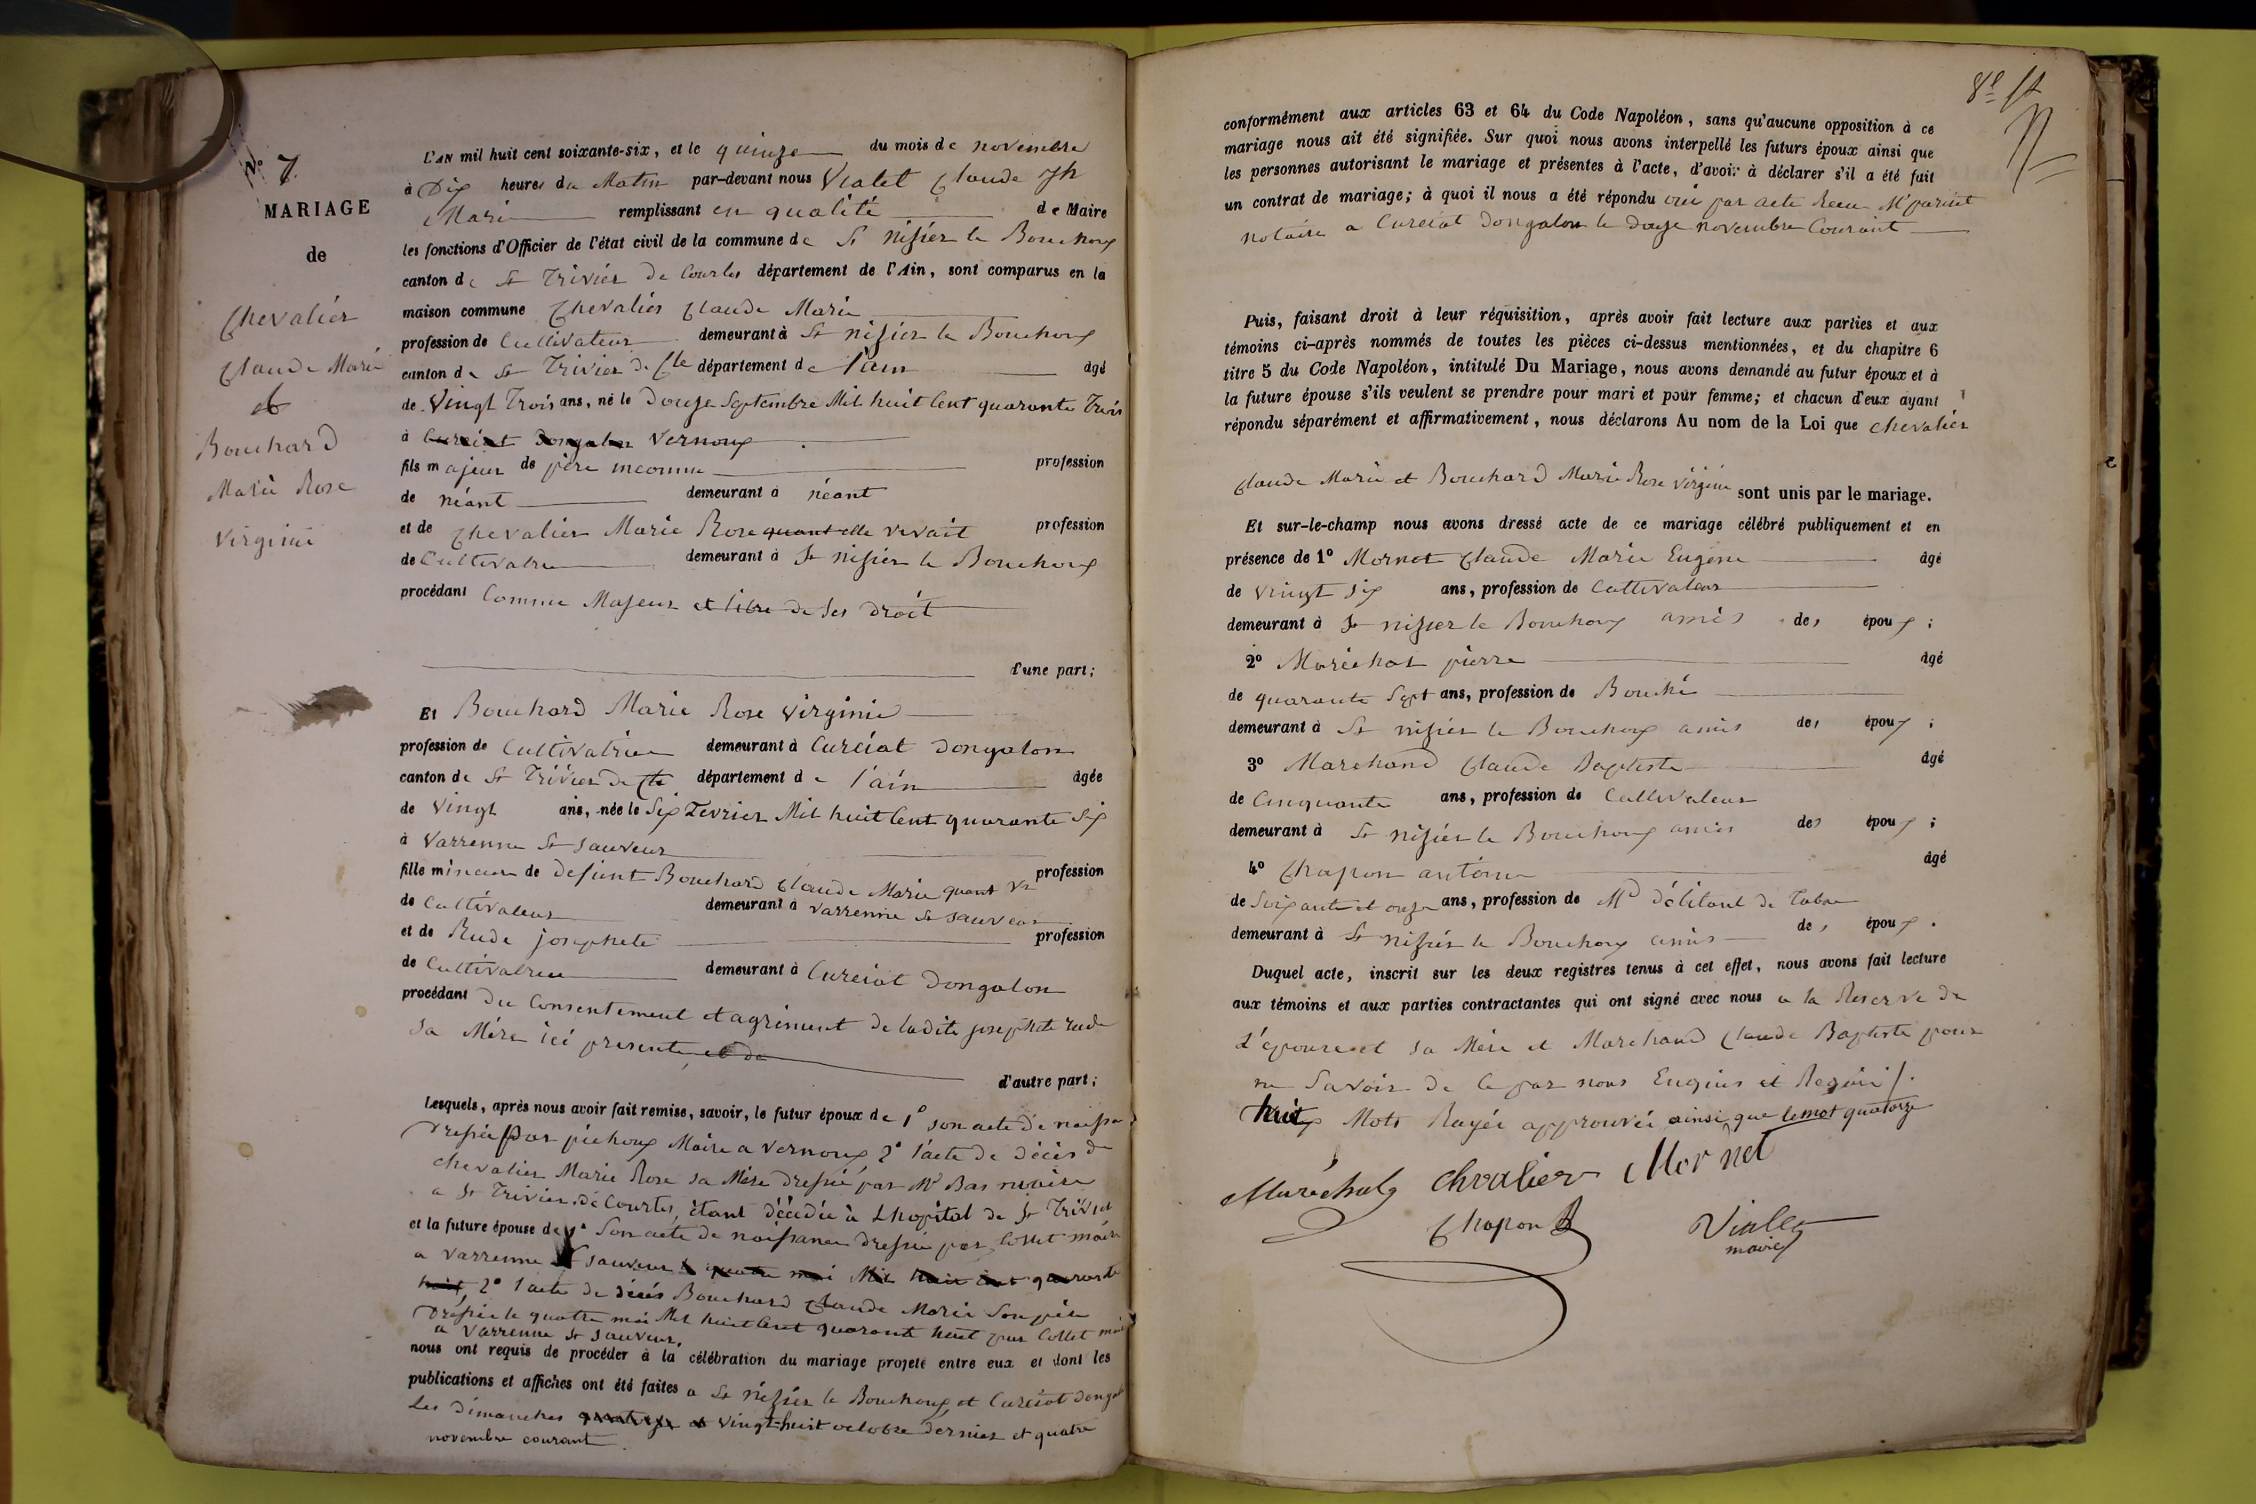 N° 7.
MARIAGE
de
Chevalier
Claude Marie
et
Bouchard
Marie Rose
Virginie
L'AN mil huit cent soixante-six, et le quinze du mois de novembre
à Dix heures du Matin par-devant nous Vialet Claude Jh
Marie remplissant en qualité de Maire
les fonctions d'Officier de l'état civil de la commune de St nisier le Bouchoux
canton de St Trivier de Courtes département de l'Ain, sont comparus en la
maison commune Chevalier Claude Marie
profession de Cultivateur demeurant à St nisier le Bouchoux
canton de St Trivier de Cte département de l'ain âgé
de Vingt Trois ans, né le Douze Septembre Mil huit Cent quarante Trois
à Curciat Dongalon Vernoux
fils majeur de père inconnu profession
de néant demeurant à néant
et de Chevalier Marie Rose quant elle vivait profession
de Cultivatrice demeurant à St nisier le Bouchoux
procédant Comme Majeur et libre de ses droit
d'une part;
Et Bouchard Marie Rose Virginie
profession de Cultivatrice demeurant à Curciat Dongalon
canton de St Trivier de Cte département de l'ain âgée
de Vingt ans, née le Six Fevrier Mil huit Cent quarante Six
à Varrenne St Sauveur
fille mineur de defunt Bouchard Claude Marie quant vi profession
de Cultivateur demeurant à Varrenne St Sauveur
et de Rude josephete profession
de Cultivatrice demeurant à Curciat Dongalon
procédant du Consentement et agrément de ladite josephete rude
sa Mère ici presente et de
d'autre part;
Lesquels, après nous avoir fait remise, savoir, le futur époux de 1° son acte de naissa
Dressée par pichoux Maire a Vernoux 2° l'acte de décès de
Chevalier Marie Rose sa Mère dressé par Mr Bas maire
a St Trivier de Courtes, étant décedée à L'hopital de St Trivier
et la future épouse de 1° Son acte de naissance dressé par Collet maire
a Varrenne St Sauveur le quatre mai Mil huit cent quarante
huit, 2° l'acte de décès Bouchard Claude Marie Son père
Dressée le quatre mai Mil huit Cent quarante huit par Collet mai
a Varrenne St Sauveur,
nous ont requis de procéder à la célébration du mariage projeté entre eux et dont les
publications et affiches ont été faites a St nisier le Bouchoux et Curciat dongal
Les Dimanches quatorze et vingt-huit octobre dernier et quatre
novembre courant
conformément aux articles 63 et 64 du Code Napoléon, sans qu'aucune opposition à ce
mariage nous ait été signifiée. Sur quoi nous avons interpellé les futurs époux ainsi que
les personnes autorisant le mariage et présentes à l'acte, d'avoir à déclarer s'il a été fait
un contrat de mariage; à quoi il nous a été répondu oui par acte Recu Mr
notaire a Curciat Dongalon le Douze novembre Courant
Puis, faisant droit à leur réquisition, après avoir fait lecture aux parties et aux
témoins ci-après nommés de toutes les pièces ci-dessus mentionnées, et du chapitre 6
titre 5 du Code Napoléon, intitulé Du Mariage, nous avons demandé au futur époux et à
la future épouse s'ils veulent se prendre pour mari et pour femme; et chacun d'eux ayant
répondu séparément et affirmativement, nous déclarons Au nom de la Loi que Chevalier
Claude Marie et Bouchard Marie Rose Virginie sont unis par le mariage.
Et sur-le-champ nous avons dressé acte de ce mariage célébré publiquement et en
présence de 1° Mornet Claude Marie Eugène âgé
de Vingt Six ans, profession de Cultivateur
demeurant à St nisier le Bouchoux amis des époux;
2° Maréchal pierre âgé
de quarante Sept ans, profession de Bouché
demeurant à St nisier le Bouchoux amis des époux;
3° Marchand Claude Baptiste âgé
de Cinquante ans, profession de Cultivateur
demeurant à St nisier le Bouchoux amis des époux;
4° Chapon antoine âgé
de Soixante et onze ans, profession de Md débitant de Tabac
demeurant à St nisier le Bouchoux amis des époux.
Duquel acte, inscrit sur les deux registres tenus à cet effet, nous avons fait lecture
aux témoins et aux parties contractantes qui ont signé avec nous a la Reserve de
L'épouse et sa Mère et Marchand Claude Baptiste pour
ne Savoir de ce par nous Enquis et Requis /.
huit Mots Rayés approuvé ainsi que le mot quatorze
Maréchal Chevalier Mornet
Chapon Vialet
maire